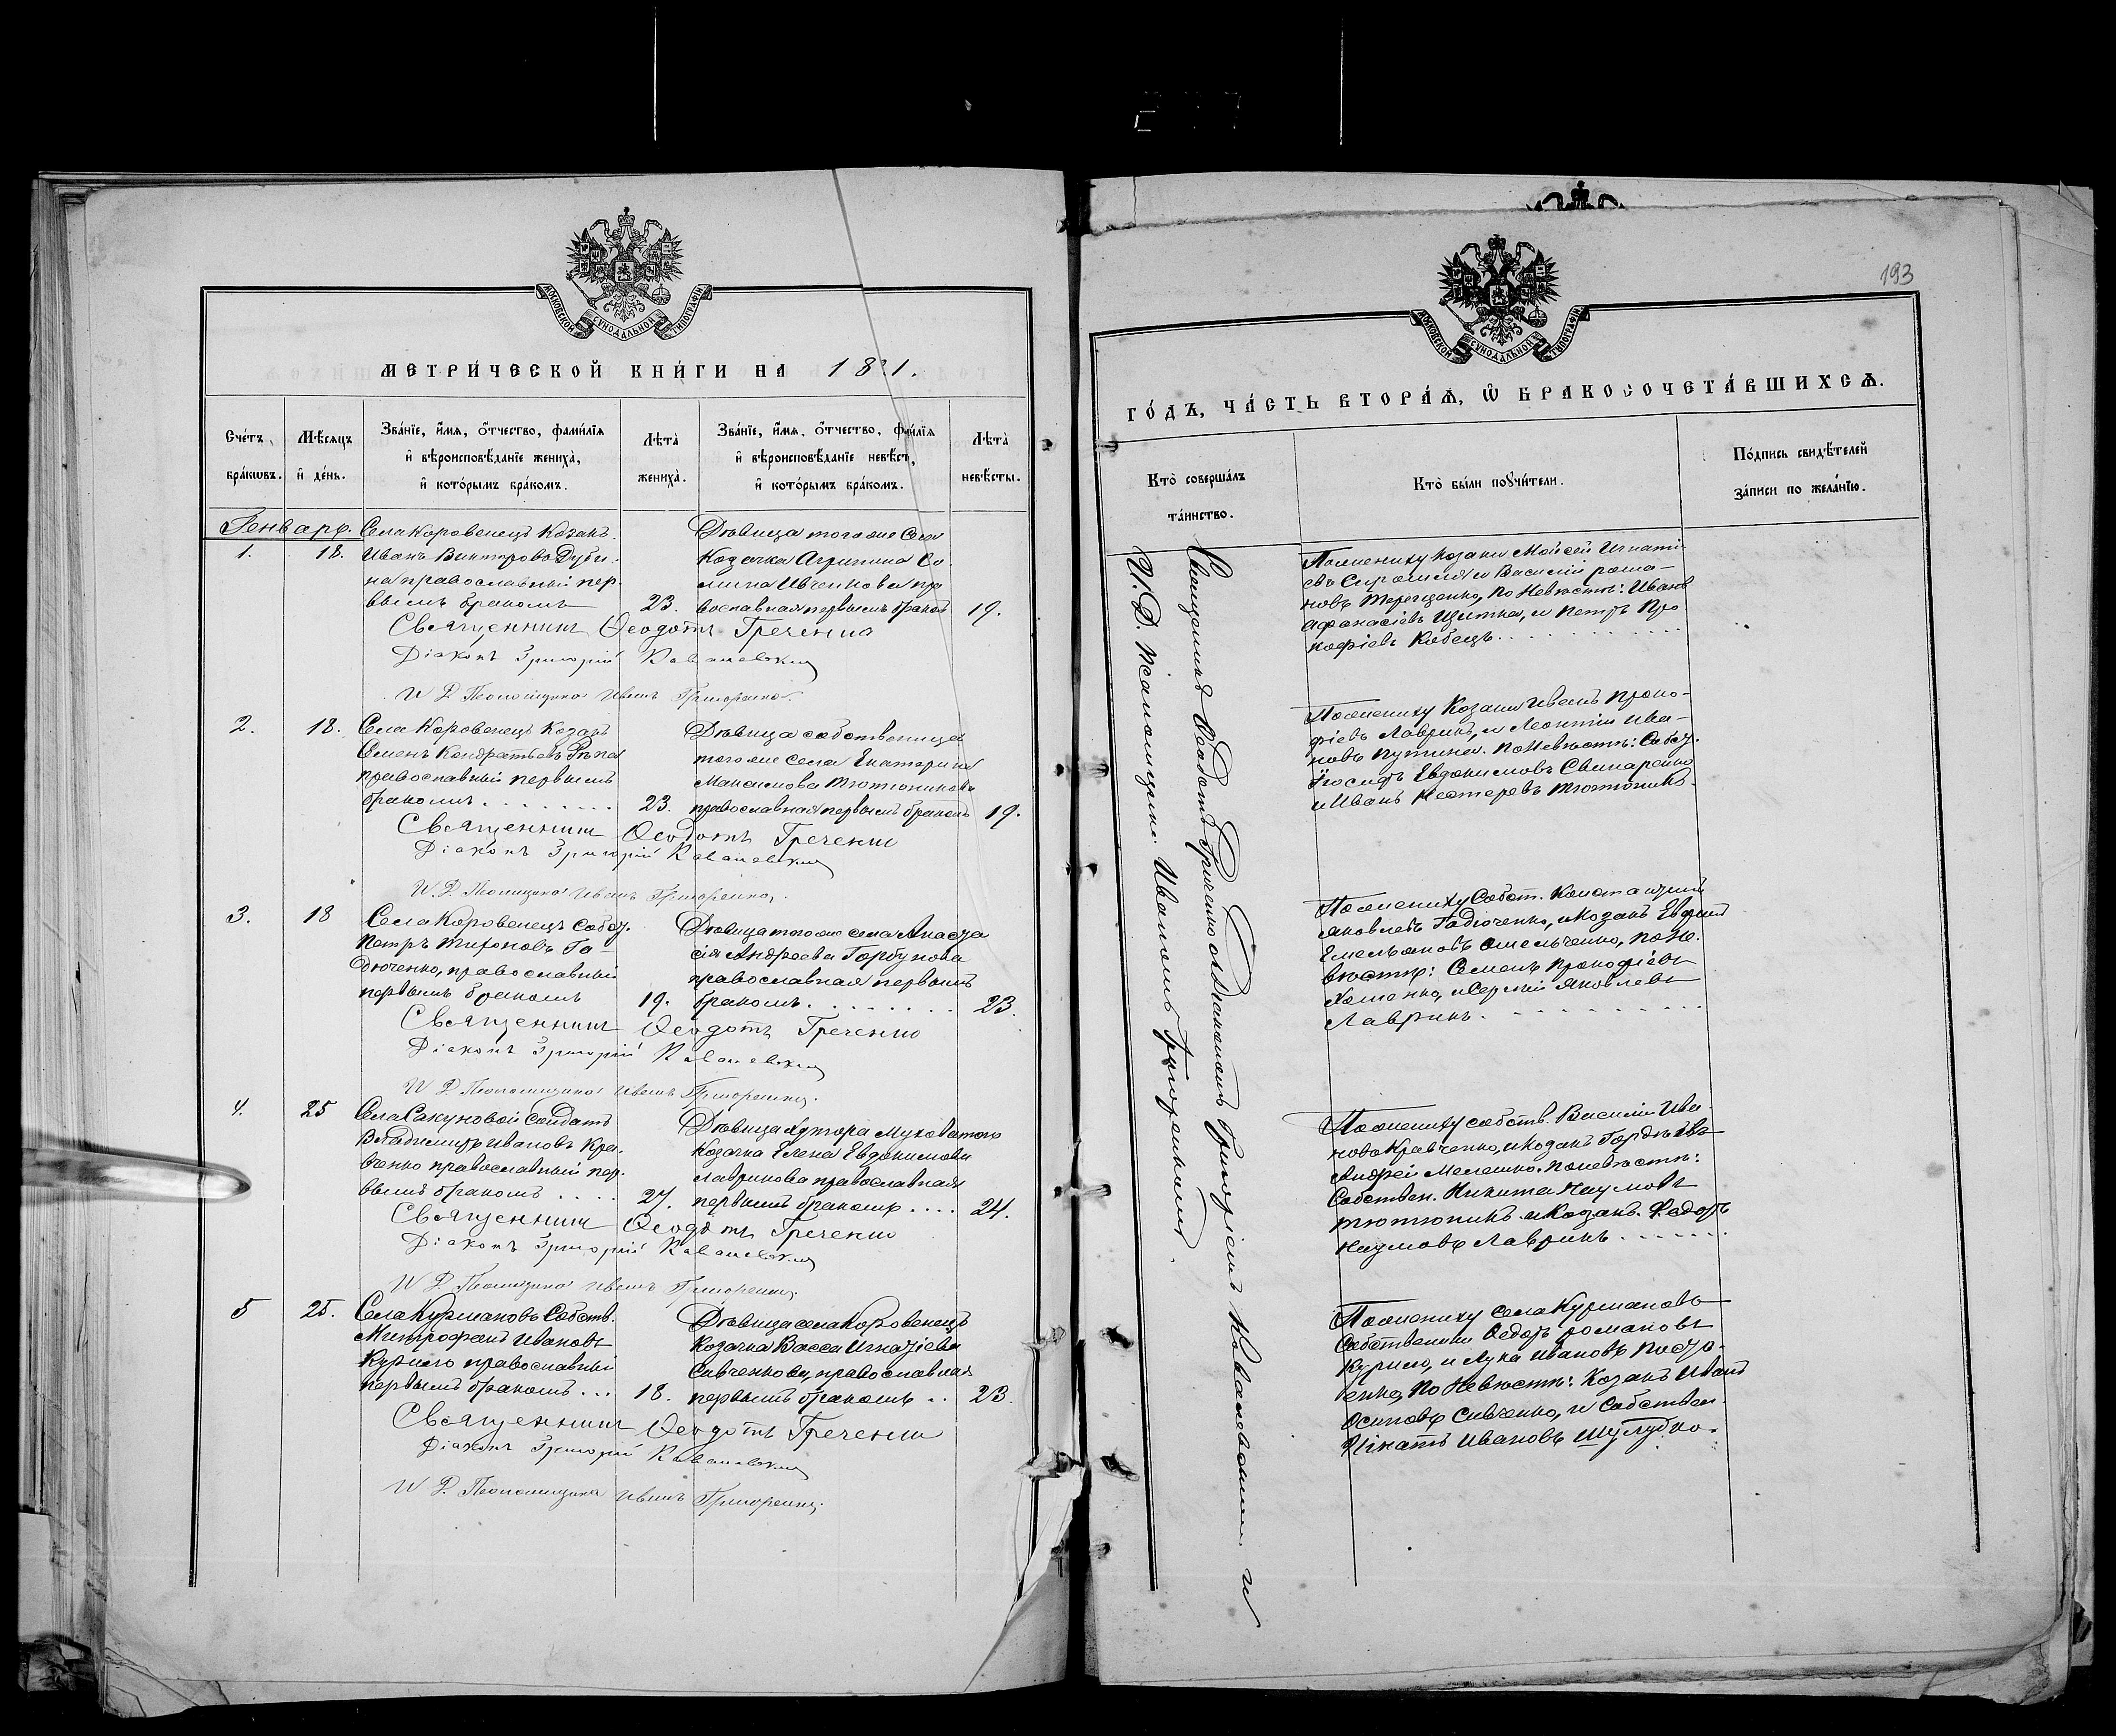 193
МОСКОВСКОЙ СѴНОДАЛЬНОЙ ТИПОГРАФІИ
МЕТРИ́ЧЕСКОЙ КНИ́ГИ НА 1881.
Сче́тъ бра́кѡвъ.
Мѣ́сяцъ и҆ де́нь.
Зва́нїе, и҆́мя, ѻ҆́тчество, фами́лїя
и҆ вѣроисповѣ́данїе жениха̀,
и҆ кото́рымъ бра́комъ.
Лѣта̀ жениха̀.
Зва́нїе, и҆́мя, ѻ҆́тчество, фами́лїя
и҆ вѣроисповѣ́данїе невѣ́сты,
и҆ кото́рымъ бра́комъ.
Лѣта̀ невѣ́сты.
Генварь.
1. 18.
Села Коровенецъ Козакъ
Иванъ Викторовъ Дуби-
на православный пер-
вымъ бракомъ 23.
Дѣвица того же села
Козачка Агрипина
Ивченкова пра
вославная первымъ бракомъ 19.
Священникъ Ѳеодотъ Гречению
Діаконъ Григорій Ковалевскій
И. Д. Псаломщика Иванъ Григоренко.
2. 18.
Села Коровенецъ Козакъ
Семенъ Кондратьевъ Рѣпа
православный первымъ
бракомъ. 23.
Дѣвица собственница
того же села Екатерина
Максимова Тютюникова
православная первымъ бракомъ 19.
Священникъ Ѳеодотъ Гречению
Діаконъ Григорій Ковалевскій
И. Д. Псаломщика Иванъ Григоренко.
3. 18
Села Коровенецъ Собст.
Петръ Тихоновъ Га-
дюченко, православный
первымъ бракомъ 19.
Дѣвица того же села Анаста
сія Андреева Горбунова
православная первымъ
бракомъ. 23.
Священникъ Ѳеодотъ Гречению
Діаконъ Григорій Ковалевскій
И. Д. Псаломщика Иванъ Григоренко.
4. 25
Села Сакуновой Солдатъ
Владимиръ Ивановъ Кра-
вченко православный пер-
вымъ бракомъ 27.
Дѣвица Хутора Муховатого
Козачка Елена Евдокимова
Лаврикова православная
первымъ бракомъ 24.
Священникъ Ѳеодотъ Гречению
Діаконъ Григорій Ковалевскій
И. Д. Псаломщика Иванъ Григоренко.
5 25.
Села Курмановъ Собств.
Митрофанъ Ивановъ
Курило православный
первымъ бракомъ 18.
Дѣвица села Коровенецъ
Козачка Васса Игнатіева
Сивченкова, православная
первымъ бракомъ 23.
Священникъ Ѳеодотъ Гречению
Діаконъ Григорій Ковалевскій
И. Д. Псаломщика Иванъ Григоренко.
МОСКОВСКОЙ СѴНОДАЛЬНОЙ ТИПОГРАФІИ
ГО́ДЪ, ЧА́СТЬ ВТОРА́Ѧ, Ѡ҆ БРАКОСОЧЕТА́ВШИХСѦ.
Кто̀ соверша́лъ
та́инство.
Кто̀ бы́ли поꙋчи́тели.
По́дпись свидѣ́телей
за́писи по жела́нїю.
Священникъ Ѳеодотъ Гриченко съ Діакономъ Григоріемъ Ковалевскимъ и
И. Д. Псаломщика Иваномъ Григоренкомъ.
По жениху Козаки Мойсей Игнаті-
евъ и Василій рома-
новъ Терещенко, по Невѣстѣ: Иванъ
Афанасіевъ Щитка, и Петръ Про
кофіевъ Кобецъ.
По жениху Козаки Иванъ Проко-
фіевъ Лаврикъ, и Леонтій Ива-
новъ Путина. По Невѣстѣ: Собст.
Іосифъ Евдокимовъ Свинаренко
и Иванъ Нестеровъ Тютюникъ.
По жениху Собст.
Яковлевъ Гадюченко, и Козакъ Евфимій
Емельяновъ Омельченко, по Не-
вѣстѣ: Семенъ Прокофіевъ
Хоменко, и Сергій Яковлевъ
Лаврикъ.
По жениху собств. Василій Ива-
новъ Кравченко, и Козакъ
Андрей Мелешко. По невѣстѣ:
Собствен. Никита Наумовъ
Тютюникъ и Козакъ Ѳедоръ
Наумовъ Лаврикъ.
По жениху села Курмановъ
Собственники Ѳедоръ романовъ
Курило, и Лука Ивановъ
енко, по Невѣстѣ: Козакъ Иванъ
Осиповъ Сивченко, и Собствен.
Игнатъ Ивановъ Шулудко.